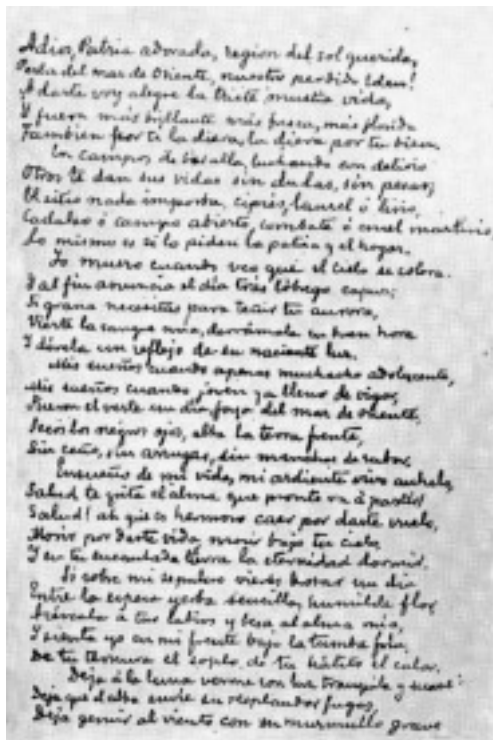 Adios, Patria adorada, region del sol querida,
Perla del mar de Oriente, nuestro perdido Eden!
A darte voy alegre la triste mustia vida,
Y fuera más brillante más fresca, más florida
Tambien por ti la diera, la diera por tu bien.
En campos de batalla, luchando con delirio
Otros te dan sus vidas sin dudas, sin pesar;
El sitio nada importa, ciprés, laurel ó lirio,
Cadalso ó campo abierto, combate ó cruel martirio,
Lo mismo es si lo piden la patria y el hogar.
Yo muero cuando veo que el cielo se colora.
Y al fin anuncia el día trás lóbrego capuz;
Si grana necesitas para teñir tu aurora,
Vierte la sangre mía, derrámala en buen hora
Y dórela un reflejo de su naciente luz.
Mis sueños cuando apenas muchacho adolescente,
Mis sueños cuando joven ya lleno de vigor,
Fueron el verte un día, joya del mar de oriente,
Secos los negros ojos, alta la tersa frente,
Sin ceño, sin arrugas, sin manchas de rubor.
Ensueño de mi vida, mi ardiente vivo anhelo,
Salud te grita el alma que pronto va á partir!
Salud! ah que es hermoso caer por darte vuelo,
Morir por darte vida, morir bajo tu cielo,
Y en tu encantada tierra la eternidad dormir.
Si sobre mi sepulcro vieres brotar un dia
Entre la espesa yerba sencilla, humilde flor,
Acércala á tus labios y besa al alma mía,
Y sienta yo en mi frente bajo la tumba fría
De tu ternura el soplo, de tu hálito el calor.
Deja á la luna verme con luz tranquila y suave:
Deja que el alba envíe su resplandor fugaz,
Deja gemir al viento con su murmullo grave